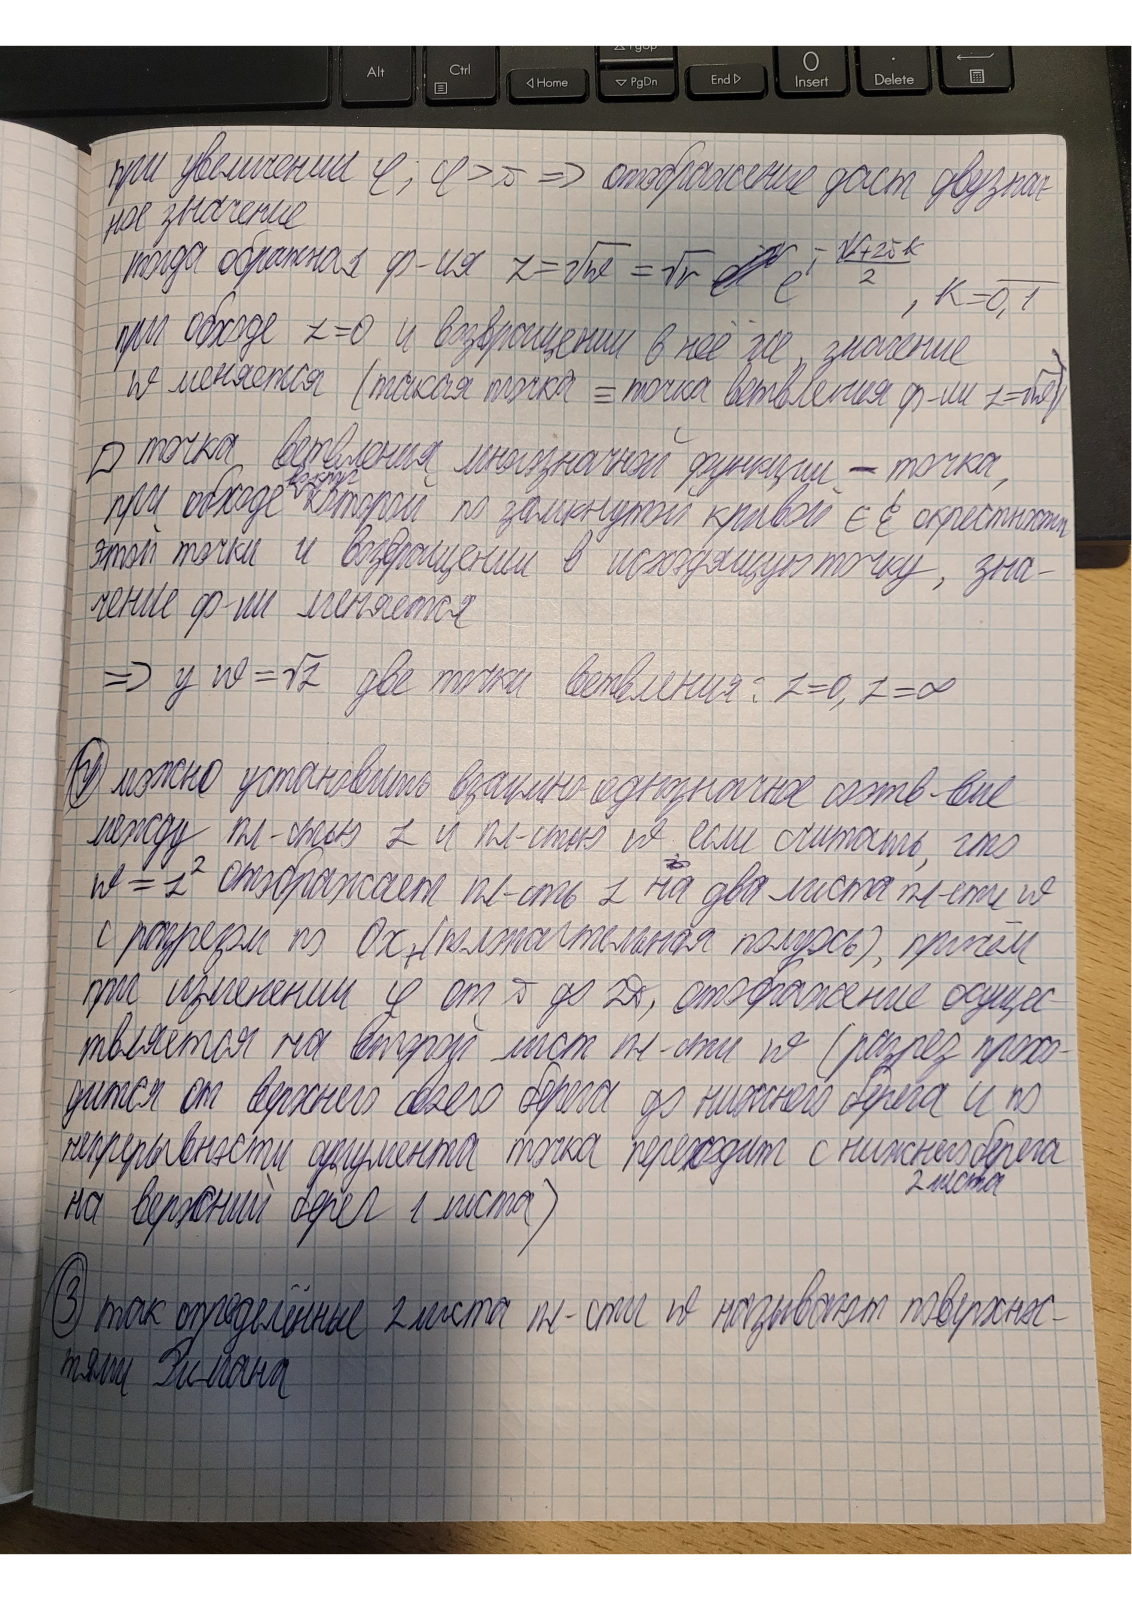 Alt
Ctrl
Home
PgUp
PgDn
End
Insert
Delete
при увеличении φ; φ>π => отображение даст двузнач-
ное значение
тогда обратная ф-ия z=√w = √r e^{i (ψ+2πk)/2}, k=0,1
при обходе z=0 и возвращении в неё же, значение
w меняется (такая точка ≡ точка ветвления ф-ии z=√w)
точка ветвления многозначной функции – точка,
при обходе вокруг которой по замкнутой кривой ∈ ξ окрестности
этой точки и возвращении в исходящую точку, зна-
чение ф-ии меняется
=> у w=√z две точки ветвления: z=0, z=∞
можно установить взаимно-однозначное соотв-вие
между пл-стью z и пл-стью w если считать, что
w=z² отображает пл-сть z на два листа пл-сти w
с разрезом по Ox₊(положительная полуось), причём
при изменении φ от π до 2π, отображение осущес-
твляется на второй лист пл-сти w (разрез прохо-
дится от верхнего своего берега до нижнего берега и по
непрерывности аргумента точка переходит с нижнего берега
2 листа
на верхний берег 1 листа)
③ так определённые 2 листа пл-сти w называют поверхнос-
тями Римана